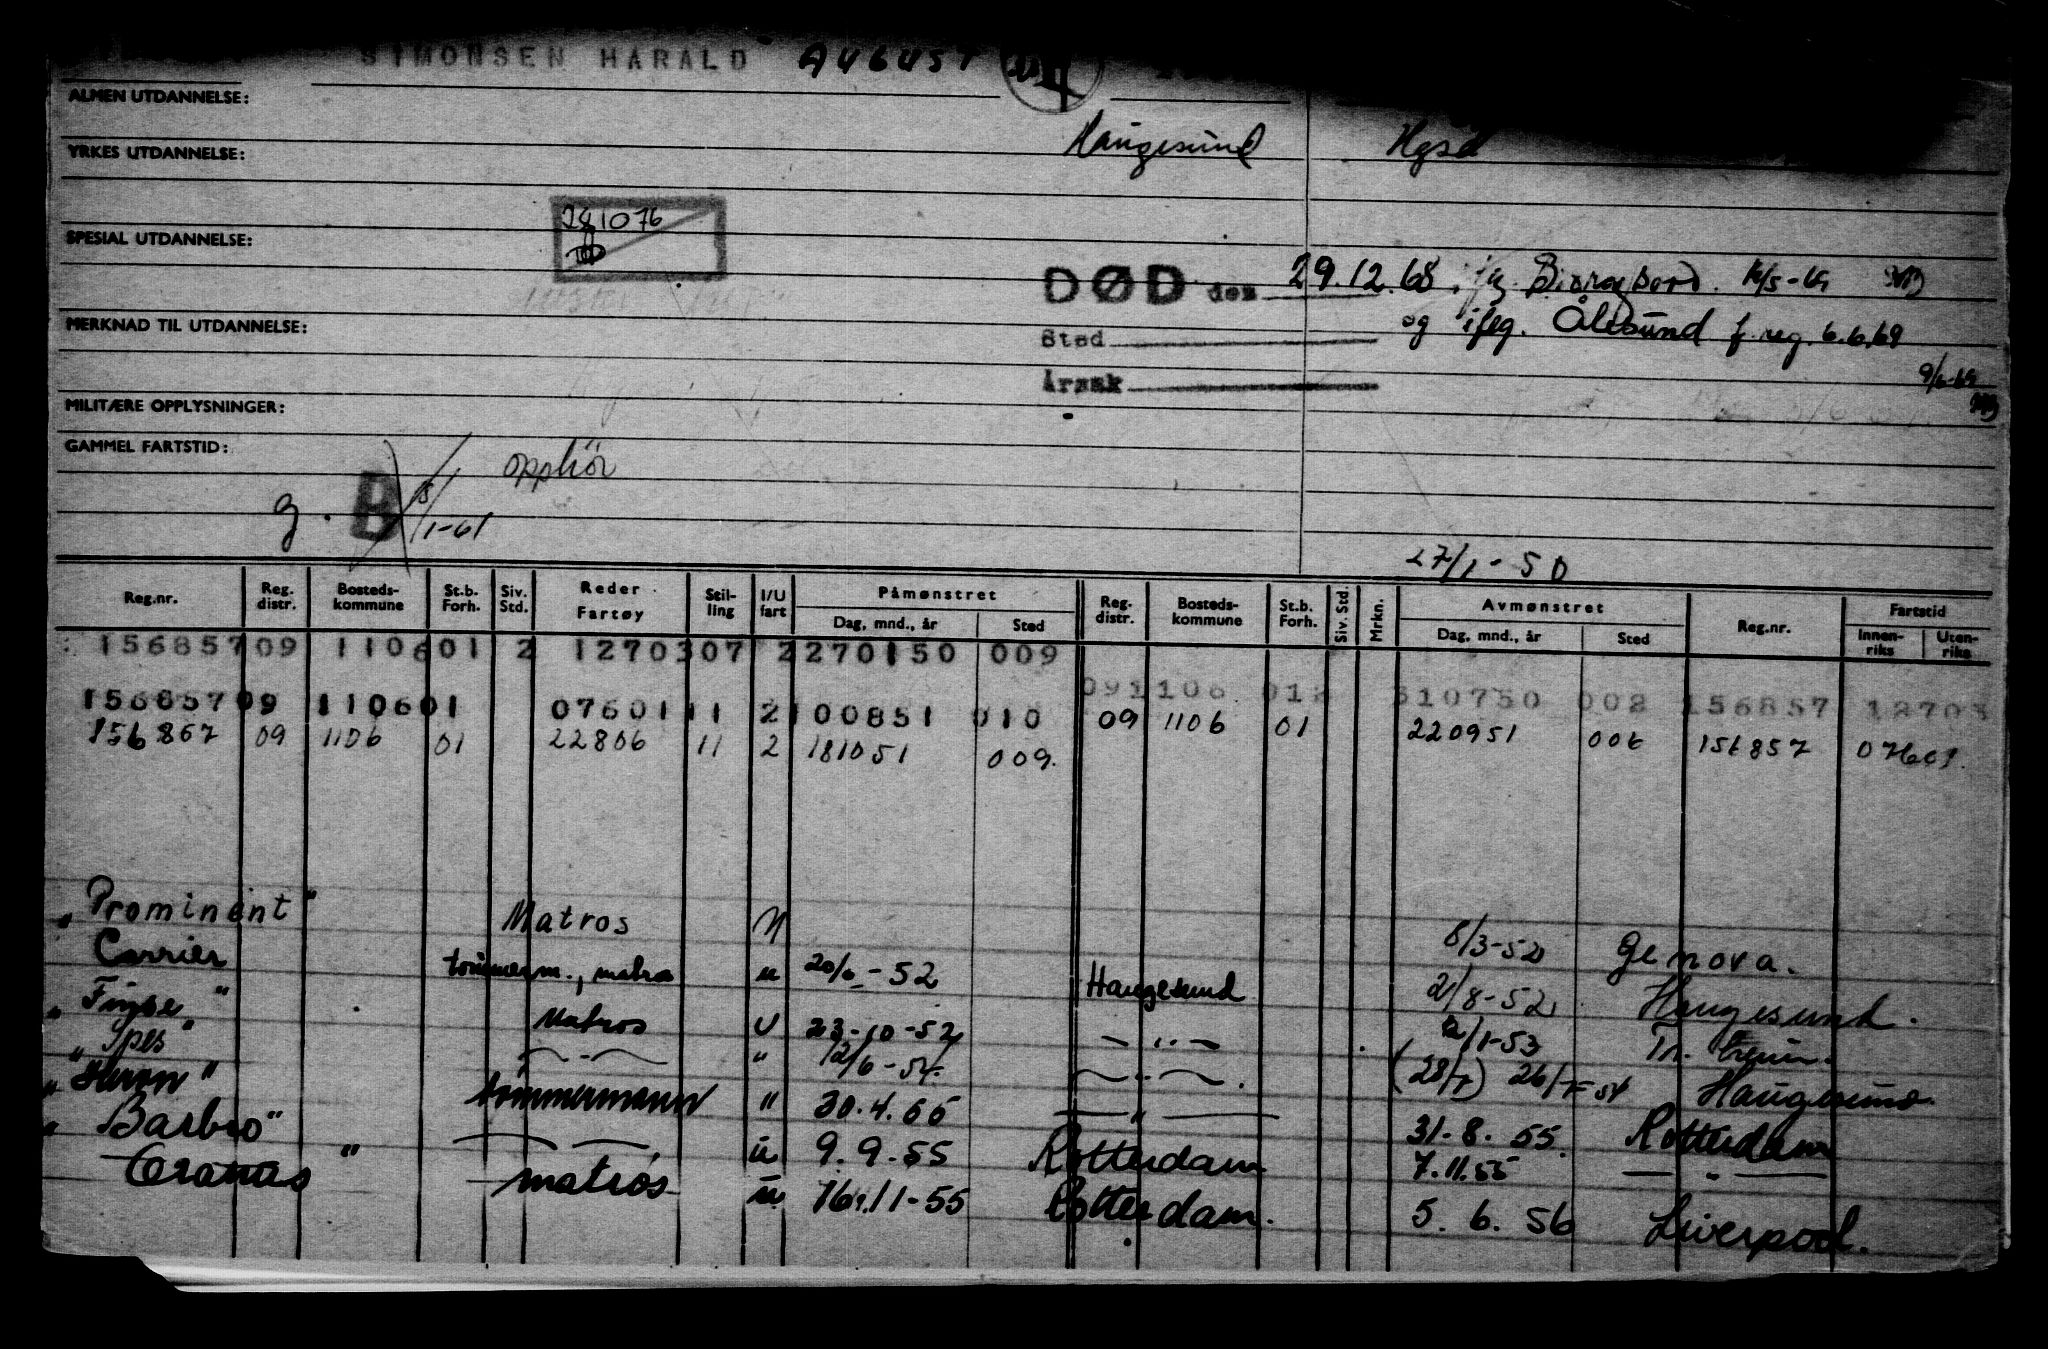 SIMONSEN HARALD AUGUST
ALMEN UTDANNELSE:
Haugesund Hgsd
YRKES UTDANNELSE:
281076
SPESIAL UTDANNELSE:
DØD den 29.12.68
og iflg. Ålesund f. reg. 6.6.69
Sted
MERKNAD TIL UTDANNELSE:
9/6-69
Årsak
MILITÆRE OPPLYSNINGER:
GAMMEL FARTSTID:
opphör
g. B 18/1-61
27/1-50
Reg.nr. Reg. distr. Bosteds-kommune St.b. Forh. Siv. Std. Reder Fartøy Stil-ling I/U fart Påmønstret Dag, mnd., år Sted Reg. distr. Bosteds-kommune St.b. Forh. Siv. Std. Mrkn. Avmønstret Dag, mnd., år Sted Reg.nr. Fartstid Innen-riks Uten-riks
156857 09 1106 01 2 12703 07 2 270150 009
09 1106 01 310750 002 156857 12703
156857 09 1106 01 07601 11 2 100851 010 09 1106 01 220951 006 156857 07601
156867 09 1106 01 22806 11 2 181051 009.
"Prominent" Matros U 8/3-52 Genova.
Carrier tømmerm., matros u 20/6-52 Haugesund 2/8-52 Haugesund.
Matros U 23-10-52 — " — 2/1-53
"Spes" — " — " 12/6-54 — " —. (28/7) 26/7-54 Haugesund
tömmermann " 30.4.55 — " — 31-8.55. Rotterdam
"Barbro" — — u 9.9.55 Rotterdam 7.11.55 — " —
" matros u 16.11-55 Rotterdam. 5.6.56 Liverpool.